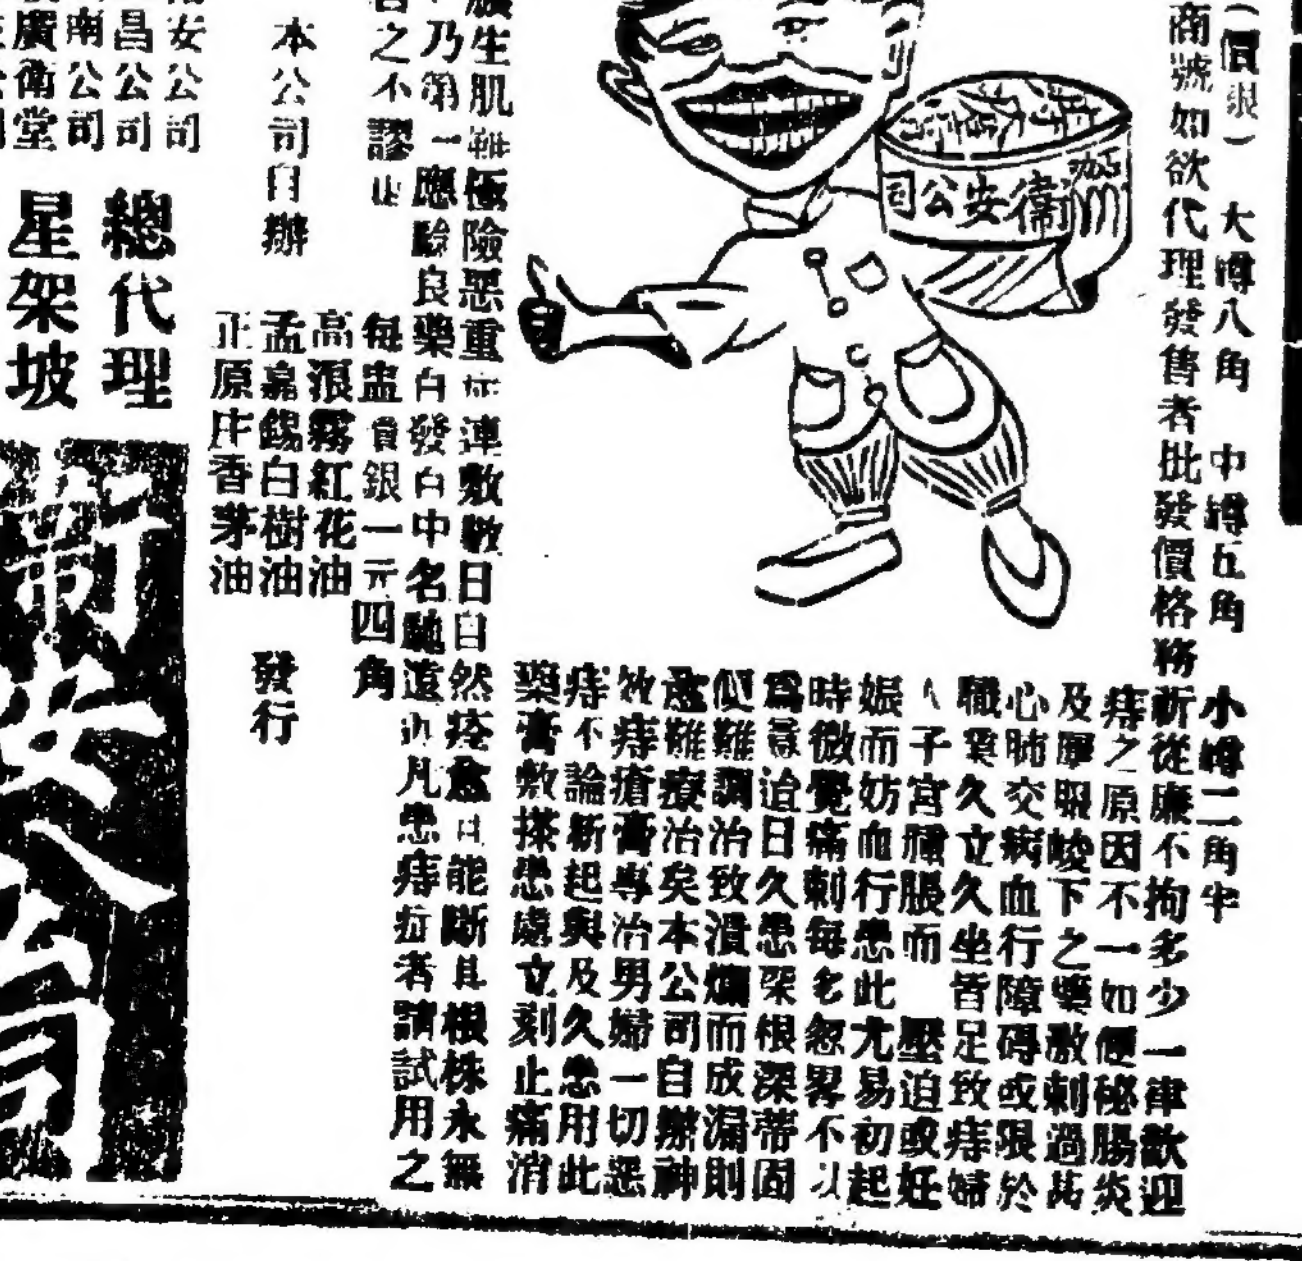 (價銀) 大罇八角 中罇五角 小罇二角半
商號如欲代理發售者批發價格務祈從廉不拘多少一律歡迎
痔之原因不一如便秘腸炎
及 下之藥激刺過甚
心肺交病血行障碍或限於
職業久立久坐皆足致痔婦
人子宮腫脹而 壓迫或妊
娠而妨血行患此尤易初起
時微覺痛刺每多忽畧不以
爲意迨日久患深根深蒂固
便難調治致潰爛而成漏則
愈難療治矣本公司自辦神
效痔瘡膏專治男婦一切惡
痔不論新起與及久患用此
藥膏敷搽患處立刻止痛消
生肌雖極險惡重症連敷數日自然痊愈且能斷其根株永無
乃第一應驗良藥自發 中名馳遠近凡患痔症者請試用之
之不謬也
每盅價銀一元四角
衛安公司
本公司自辦
高浪霧紅花油
孟嘉錫白樹油
正原庄香茅油
發行
安公司
昌公司
南公司
廣衛堂
總代理
星架坡
衛安公司